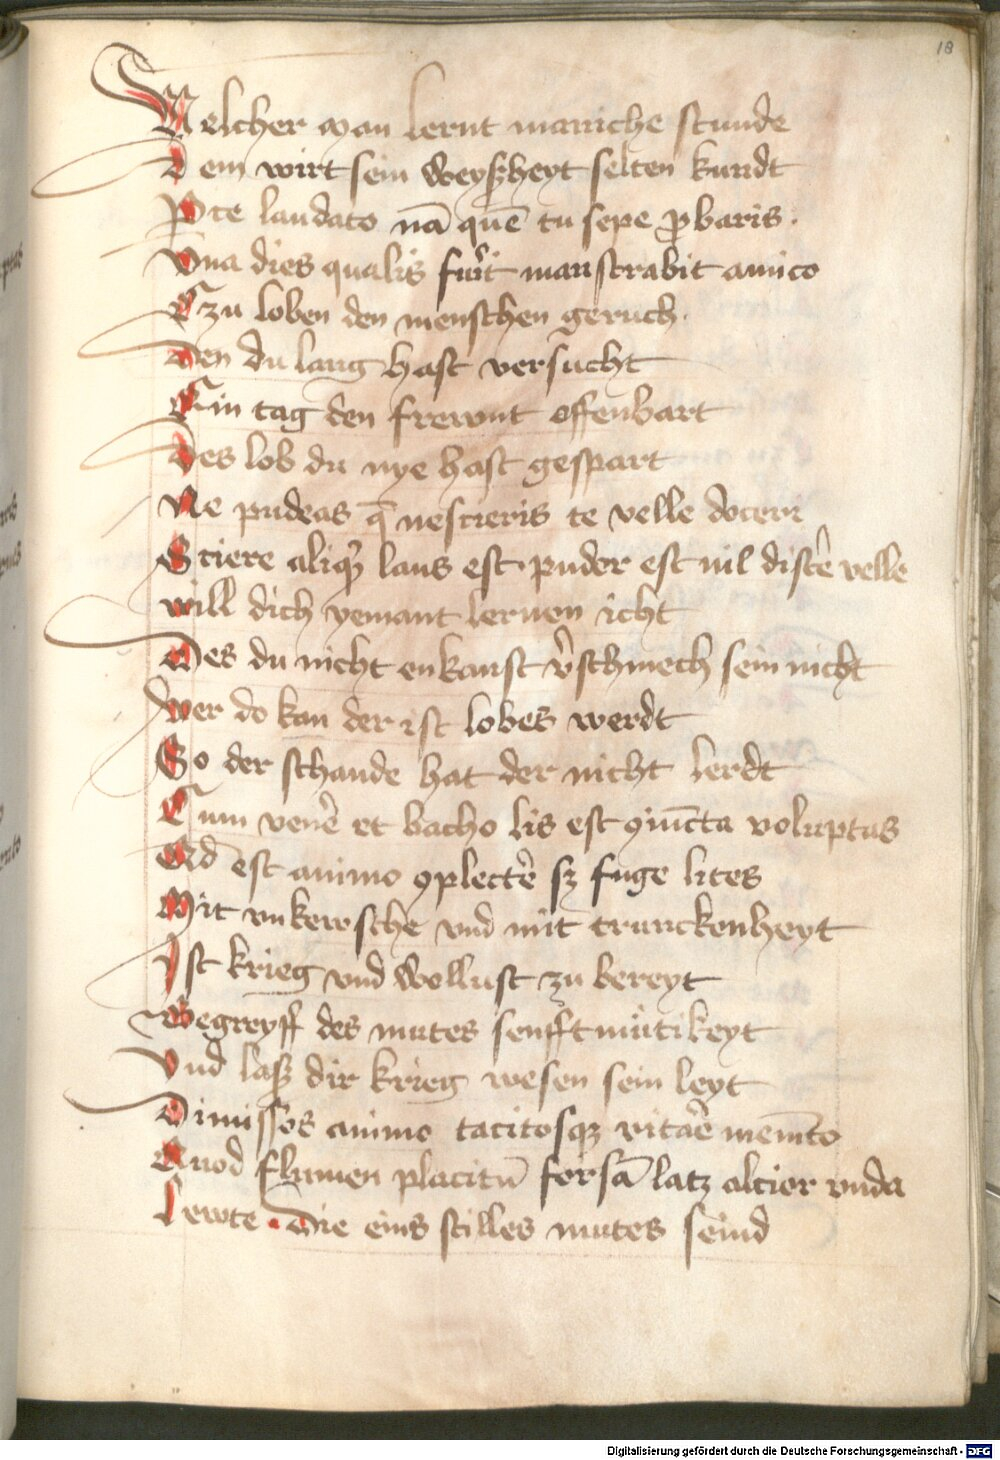 18
Welcher man lernt manche stunde
Dem wirt sein weyßheyt selten kundt
Parce laudato nā quē tu sepe ꝓbaris.
Vna dies qualis fu̓it manstrabit amico
Czu loben den menschen geruch.
Den du lang hast versucht
Ein tag den frewnt offenbart
Des lob du nye hast gespart
Ne pudeas q̄ nescieris te velle doceri
Sciere aliqͥd laus est pudor est nil disce̓ velle
will dich yemant lernen icht
Des du nicht enkanst v̓schmech sein nicht
Wer do kan der ist lobes werdt
So der schande hat der nicht lerdt
Cum vene̓ et bacho lis est ꝯiūcta voluptas
Qd̄ est animo ꝯplecte̓ sꝫ fuge lites
Mit vnkewsche vnd mit trunckenheyt
Ist krieg vnd wollust zu bereyt
Begreyff des mutes senfftmütikeyt
Vnd laß dir krieg wesen sein leyt
Dimissos animo tacitosqꝫ vitae̓ memēto
Quod flumen placitū forsā latꝫ altior vnda
Lewte die eins stilles mutes seind
Digitalisierung gefördert durch die Deutsche Forschungsgemeinschaft - DFG